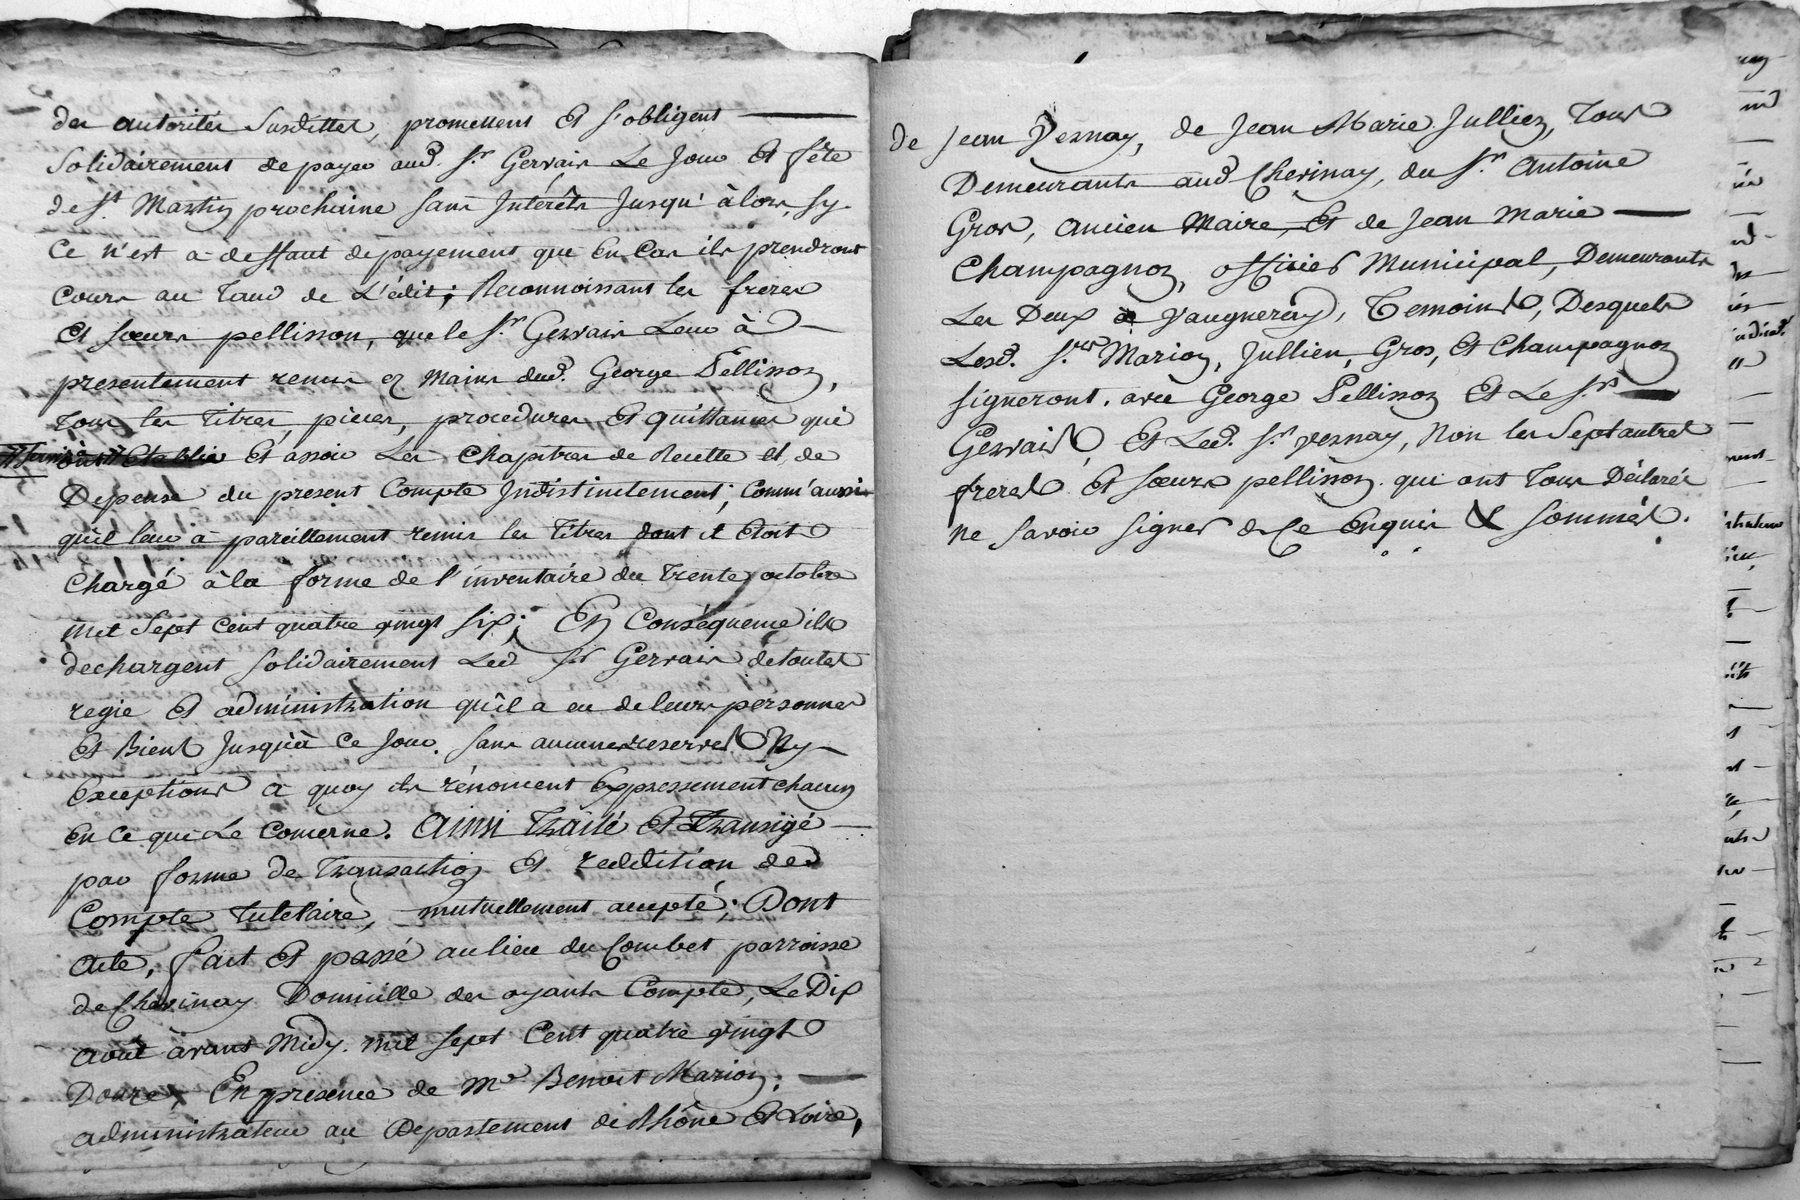 des autorités Susdittes, promettent et s'obligent
Solidairement de payer aud. Sr. Gervais Le Jour et fête
de St. Martin prochaine sans Intérêts Jusqu'àlors, sy
Ce n'est a deffaut de payement que en Cas ils prendront
Cours au Taux de L'édit; Reconnoissant les freres
et sœurs pellisson, que le Sr. Gervais Leur à
presentement remis ez mains dud. George Pellisson,
Tous les Titres, pièces, procedures et quittances qui
et assoir Les Chapitres de Recette et de
Depense du present Compte Indistinctement; Comm'aussi
qu'il leur à pareillement remis les Titres dont il étoit
Chargé à la forme de l'inventaire du Trente octobre
mil Sept Cent quatre vingt six; En Conséquence ils
dechargent solidairement Led Sr Gervais de toutes
regie et administration qu'il a eu de leurs personnes
et Biens Jusqu'à Ce Jour. sans aucunes reserves Ny
Exceptions a quoy ils rénoncent Expressement chacun
En Ce qui Le Concerne. Ainsi Traité et Transigé
par forme de Transaction et reddition de
Compte Tutelaire, mutuellement accepté; Dont
acte, fait et passé au lieu du Combet parroisse
de Chevinay Domicille des oyants Compte, Le Dix
aout avant Midy. mil sept Cent quatre vingt
Douze, En presence de Me Benoit Marion,
administrateur au Departement de Rhône et Loire,
de Jean Vesnay, de Jean Marie Jullien, Tous
Demeurants aud Chevinay, du Sr. Antoine
Gros, ancien Maire, et de Jean Marie
Champagnon, officier Municipal, Demeurants
Les Deux à Vaugneray, Temoins, Desquels
Lesd. Srs Marion, Jullien, Gros, et Champagnon
signeront, avec George Pellisson et Le Sr.
Gervais, et Led. Sr. vesnay, Non les Sept autres
freres et sœurs pellisson qui ont Tous Déclarés
ne savoir signer de Ce Enquis & sommés.